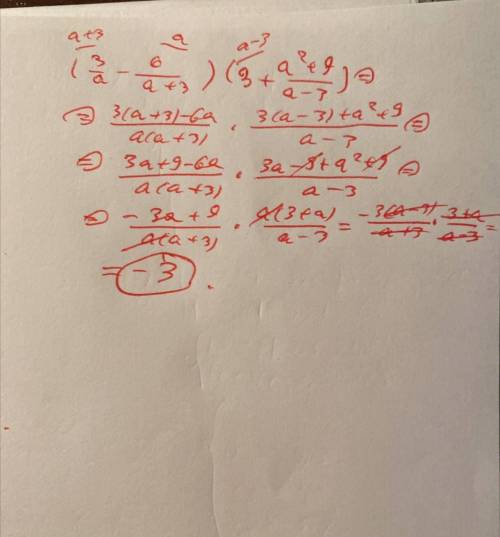 a+3 a a-3
(3/a - 6/(a+3))(3 + (a²+9)/(a-3)) =
= (3(a+3)-6a)/(a(a+3)) · (3(a-3)+a²+9)/(a-3) =
= (3a+9-6a)/(a(a+3)) · (3a-9+a²+9)/(a-3) =
= (-3a+9)/(a(a+3)) · (a(3+a))/(a-3) = (-3(a-3))/(a+3) · (3+a)/(a-3) =
= -3.